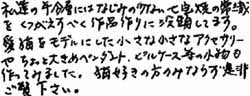 私達の年令層にはなじみの少ない七宝焼の常識
をくつがえすべく作品作りに没頭してます。
愛猫をモデルにした小さな小さなアクセサリー
やちょっと大きめペンダント、ピルケース等の小物も
作ってみました。猫好きの方のみならず是非
ご覧下さい。